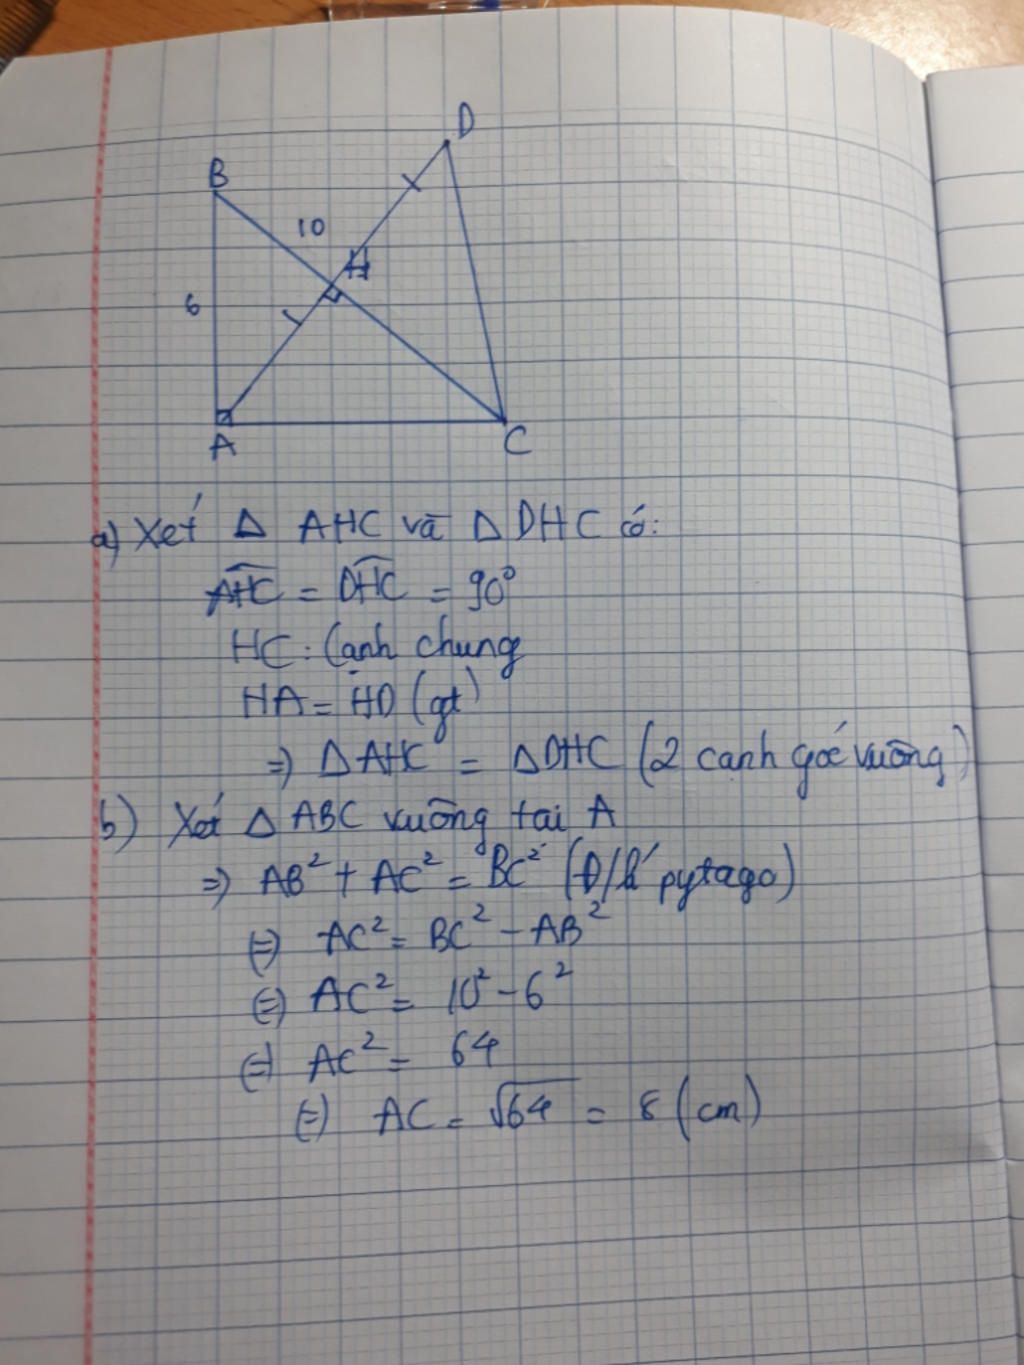 D
B
10
H
6
A
C
a) Xét Δ AHC và Δ DHC có:
AHC = DHC = 90°
HC: Cạnh chung
HA = HD (gt)
=> Δ AHC = Δ DHC (2 cạnh góc vuông)
b) Xét Δ ABC vuông tại A
=> AB² + AC² = BC² (Đ/lí pytago)
(=) AC² = BC² - AB²
(=) AC² = 10² - 6²
(=) AC² = 64
(=) AC = √64 = 8 (cm)